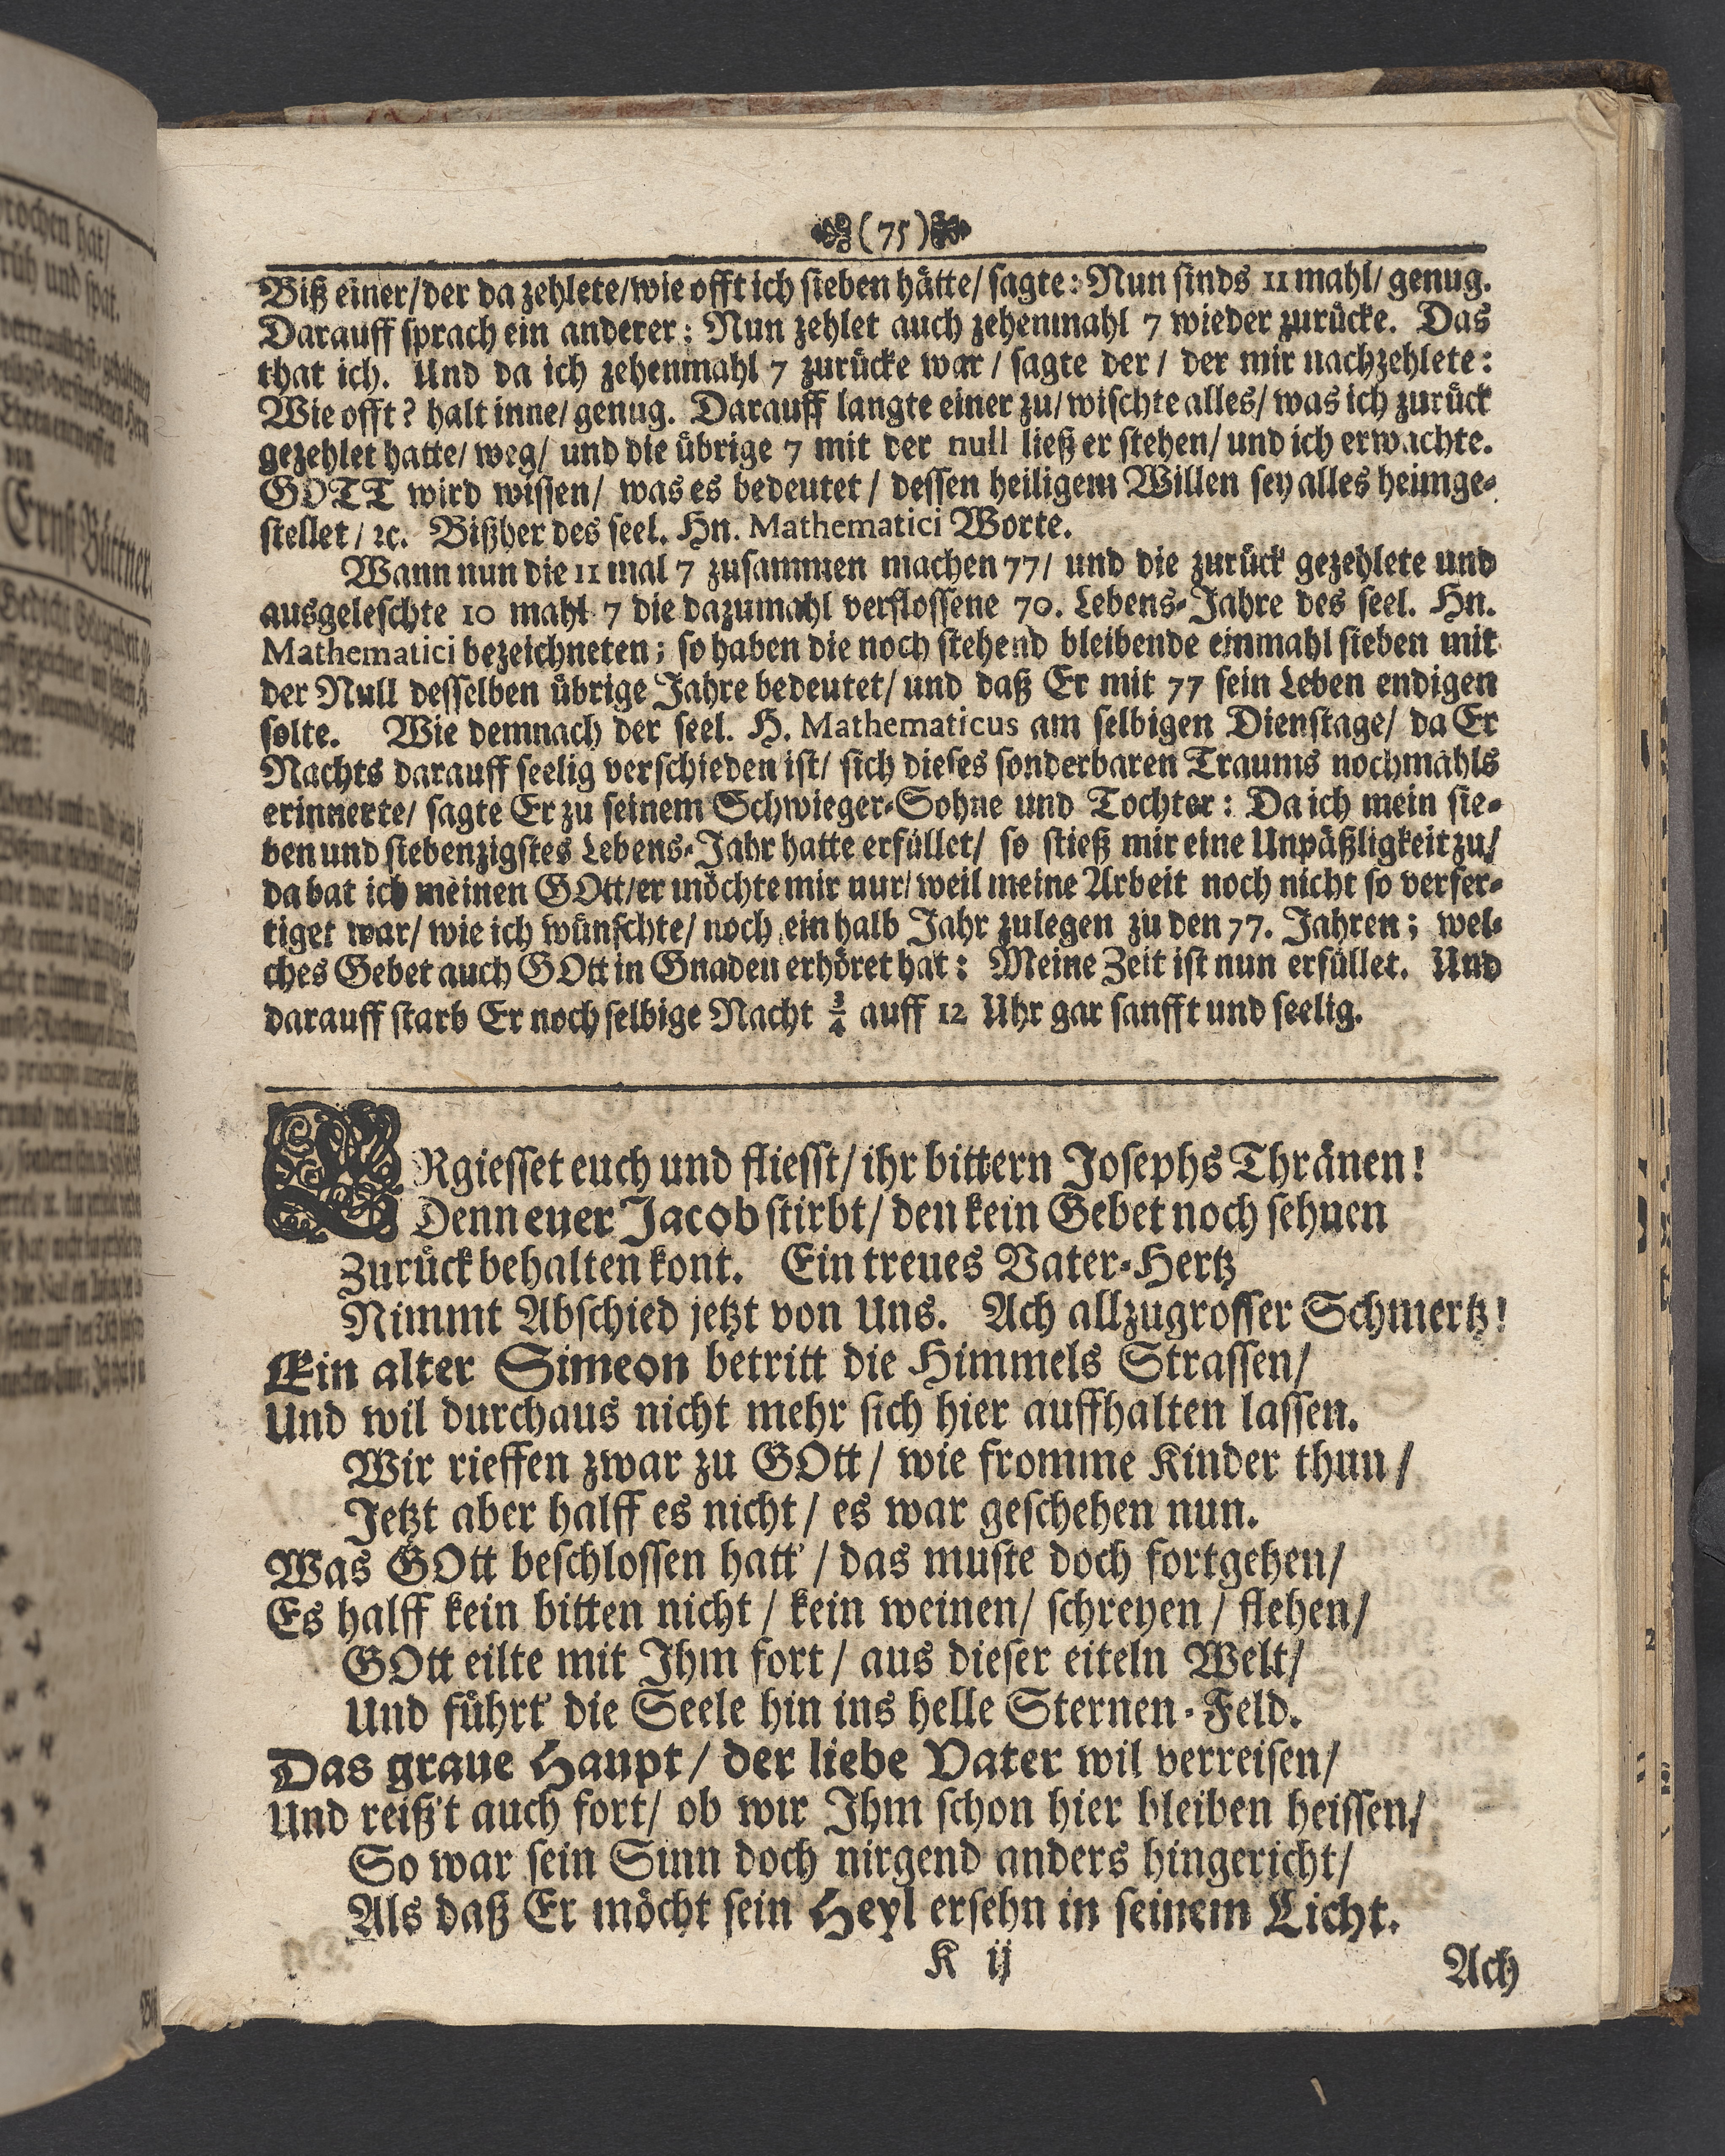 (75)
Biß einer/der da zehlete/wie offt ich sieben hätte/ sagte: Nun sinds 11 mahl/ genug.
Darauff sprach ein anderer: Nun zehlet auch zehenmahl 7 wieder zurücke. Das
that ich. Und da ich zehenmahl 7 zurücke war / sagte der / der mir nachzehlete:
Wie offt? halt inne/ genug. Darauff langte einer zu/ wischte alles/ was ich zurück
gezehlet hatte/ weg/ und die übrige 7 mit der null ließ er stehen/ und ich erwachte.
GOTT wird wissen/ was es bedeutet / dessen heiligem Willen sey alles heimge-
stellet / ꝛc. Bißher des seel. Hn. Mathematici Worte.
Wann nun die 11 mal 7 zusammen machen 77/ und die zurück gezehlete und
ausgeleschte 10 mahl 7 die dazumahl verflossene 70. Lebens-Jahre des seel. Hn.
Mathematici bezeichneten; so haben die noch stehend bleibende einmahl sieben mit
der Null desselben übrige Jahre bedeutet/ und daß Er mit 77 sein Leben endigen
solte. Wie demnach der seel. H. Mathematicus am selbigen Dienstage/ da Er
Nachts darauff seelig verschieden ist/ sich dieses sonderbaren Traums nochmahls
erinnerte/ sagte Er zu seinem Schwieger-Sohne und Tochter: Da ich mein sie-
ben und siebenzigstes Lebens-Jahr hatte erfüllet/ so stieß mir eine Unpäßligkeit zu/
da bat ich meinen GOtt/er möchte mir nur/ weil meine Arbeit noch nicht so verfer-
tiget war/ wie ich wünschte/ noch ein halb Jahr zulegen zu den 77. Jahren; wel-
ches Gebet auch GOtt in Gnaden erhöret hat: Meine Zeit ist nun erfüllet. Und
darauff starb Er noch selbige Nacht ¾ auff 12 Uhr gar sanfft und seelig.
ERgiesset euch und fliesst/ ihr bittern Josephs Thränen!
Denn euer Jacob stirbt/ den kein Gebet noch sehnen
Zurück behalten kont. Ein treues Vater-Hertz
Nimmt Abschied jetzt von Uns. Ach allzugrosser Schmertz!
Ein alter Simeon betritt die Himmels Strassen/
Und wil durchaus nicht mehr sich hier auffhalten lassen.
Wir rieffen zwar zu GOtt / wie fromme Kinder thun /
Jetzt aber halff es nicht / es war geschehen nun.
Was GOtt beschlossen hatt' / das muste doch fortgehen/
Es halff kein bitten nicht / kein weinen/ schreyen / flehen/
GOtt eilte mit Ihm fort / aus dieser eiteln Welt/
Und führt' die Seele hin ins helle Sternen-Feld.
Das graue Haupt / der liebe Vater wil verreisen/
Und reiß't auch fort/ ob wir Ihm schon hier bleiben heissen/
So war sein Sinn doch nirgend anders hingericht/
Als daß Er möcht sein Heyl ersehn in seinem Licht.
K ij
Ach